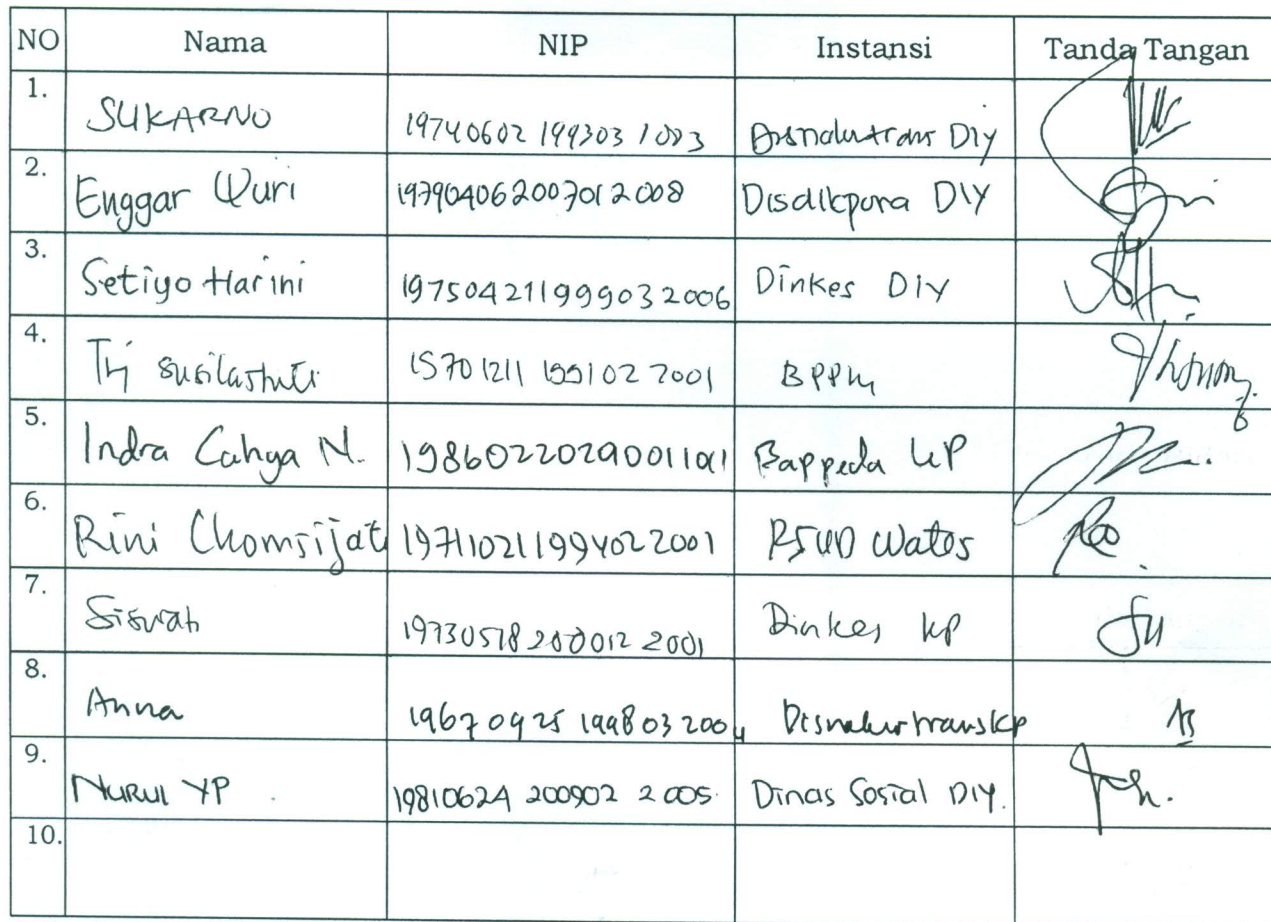 NO Nama NIP Instansi Tanda Tangan
1. SUKARNO 19740602 199303 1003 Disnakertrans DIY
2. Enggar Wuri 197904062007012008 Disdikpora DIY
3. Setiyo Harini 197504211999032006 Dinkes DIY
4. Tri Susilastuti 19701211 199102 2001 BPPM
5. Indra Cahya N. Bappeda KP
6. Rini Chomsijati 197110211994022001 RSUD Wates
7. 19730518 200012 2001 Dinkes KP
8. Anna 19670925 199803 2004 Disnakertrans KP
9. NURUL YP 19810624 200902 2 005. Dinas Sosial DIY.
10.